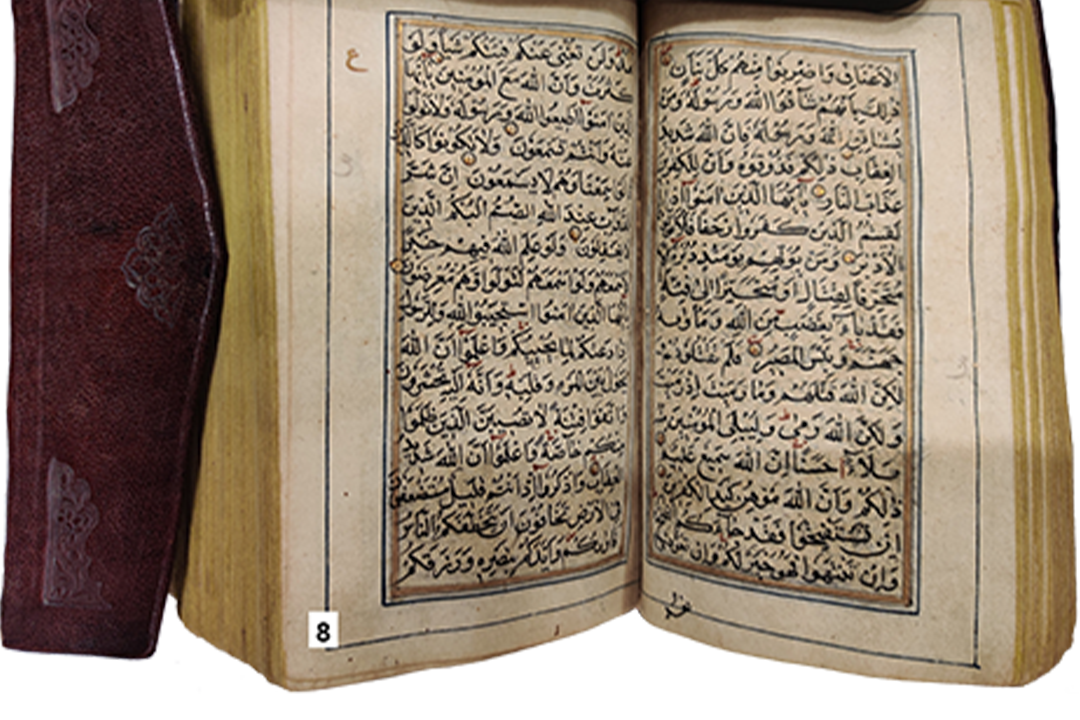 الاعناق واضربوا منهم كل بنان
ذلك بانهم شاقوا الله ورسوله ومن
يشاقق الله ورسوله فان الله شديد
العقاب ذلكم فذوقوه وان للكفرين
عذاب النار يا ايها الذين امنوا اذا
لقيتم الذين كفروا زحفا فلا
الادبار ومن يولهم يومئذ دبره الا
متحرفا لقتال او متحيزا الى فئة
فقد باء بغضب من الله ومأويه
جهنم وبئس المصير فلم تقتلوهم
ولكن الله قتلهم وما رميت اذ رميت
ولكن الله رمى وليبلى المؤمنين منه
بلاء حسنا ان الله سميع عليم
ذلكم وان الله موهن كيد الكفرين
ان تستفتحوا فقد جاءكم
وان تنتهوا فهو خير لكم وان تعودوا
ع
نعد ولن تغنى عنكم فئتكم شيئا ولو
كثرت وان الله مع المؤمنين يا ايها
الذين امنوا اطيعوا الله ورسوله ولا تولوا
عنه وانتم تسمعون ولا تكونوا كالذين
قالوا سمعنا وهم لا يسمعون ان شر
الدواب عند الله الصم البكم الذين
لا يعقلون ولو علم الله فيهم خيرا
لاسمعهم ولو اسمعهم لتولوا وهم معرضون
يا ايها الذين امنوا استجيبوا لله وللرسول
اذا دعاكم لما يحييكم واعلموا ان الله
يحول بين المرء وقلبه وانه اليه تحشرون
واتقوا فتنة لا تصيبن الذين ظلموا
منكم خاصة واعلموا ان الله شديد
العقاب واذكروا اذ انتم قليل مستضعفون
فى الارض تخافون ان يتخطفكم الناس
فاويكم وايدكم بنصره ورزقكم
8